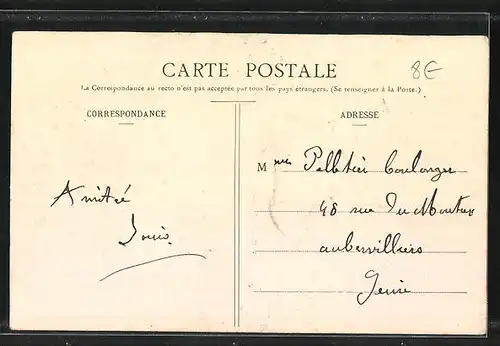 8€
CARTE POSTALE
La Correspondance au recto n'est pas acceptée par tous les pays étrangers. (Se renseigner à la Poste.)
CORRESPONDANCE
ADRESSE
M Pelletier Boulanger
48 rue du Moutier
aubervilliers
Seine
Amitié